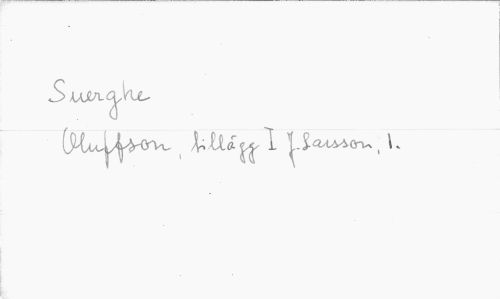 Suerghe
Oluffson, tillägg I J. Larsson, 1.